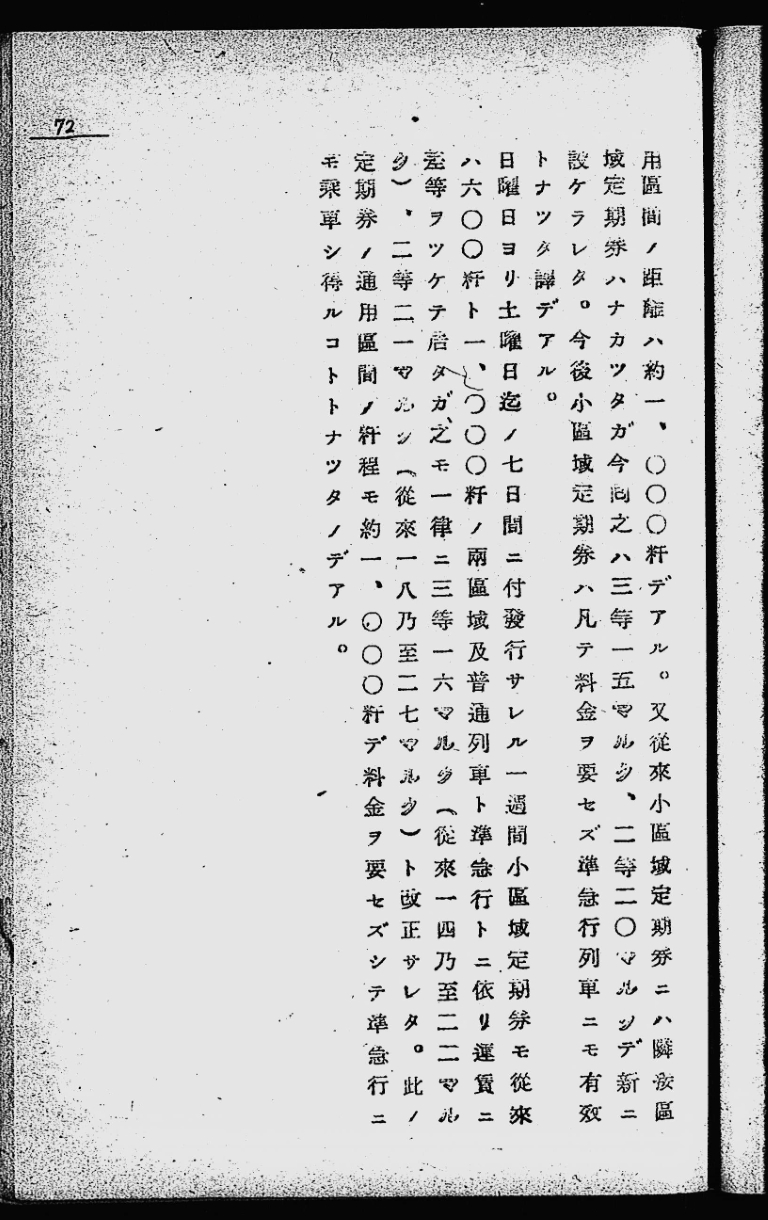 72
用區間ノ距離ハ約一、〇〇〇粁デアル。又從來小區域定期券ニハ隣接區
域定期券ハナカツタガ今囘之ハ三等一五マルク、二等二〇マルクデ新ニ
設ケラレタ。今後小區域定期券ハ凡テ料金ヲ要セズ準急行列車ニモ有效
トナツタ譯デアル。
日曜日ヨリ土曜日迄ノ七日間ニ付發行サレル一週間小區域定期券モ從來
ハ六〇〇粁ト一、〇〇〇粁ノ兩區域及普通列車ト準急行トニ依リ運賃ニ
差等ヲツケテ居タガ、之モ一律ニ三等一六マルク（從來一四乃至二二マル
ク）、二等二一マルク（從來一八乃至二七マルク）ト改正サレタ。此ノ
定期券ノ通用區間ノ粁程モ約一、〇〇〇粁デ料金ヲ要セズシテ準急行ニ
モ乘車シ得ルコトトナツタノデアル。